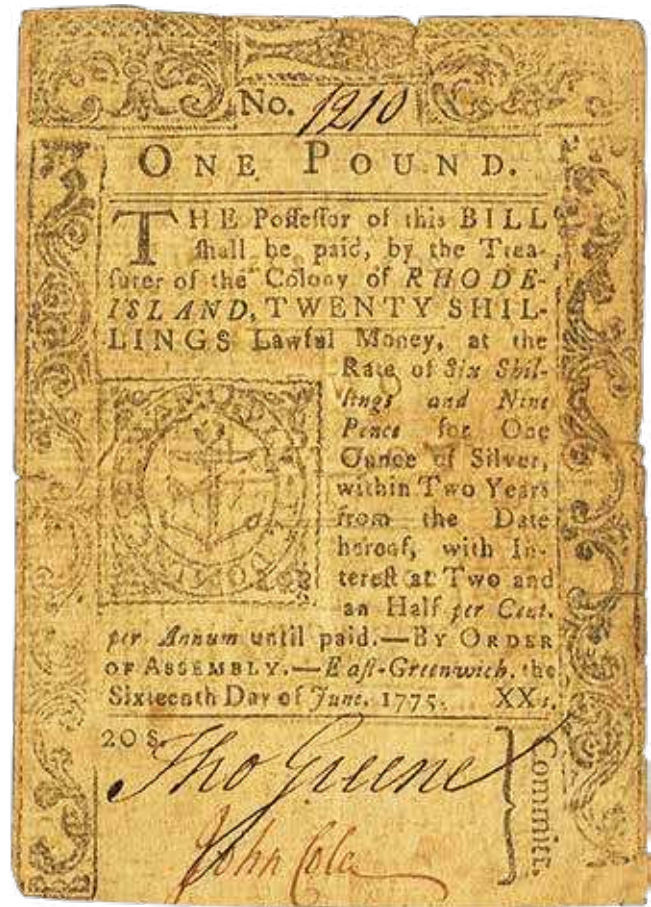 No. 1210
ONE POUND.
THE Poſſeſſor of this BILL
ſhall be paid, by the Trea-
ſurer of the Colony of RHODE-
ISLAND, TWENTY SHIL-
LINGS Lawful Money, at the
Rate of Six Shil-
lings and Nine
Pence for One
Ounce of Silver,
within Two Years
from the Date
hereof, with In-
tereſt at Two and
an Half per Cent.
per Annum until paid.—BY ORDER
OF ASSEMBLY.—Eaſt-Greenwich, the
Sixteenth Day of June, 1775. XXs.
20 S.
Tho Greene
John Cole
Committ.